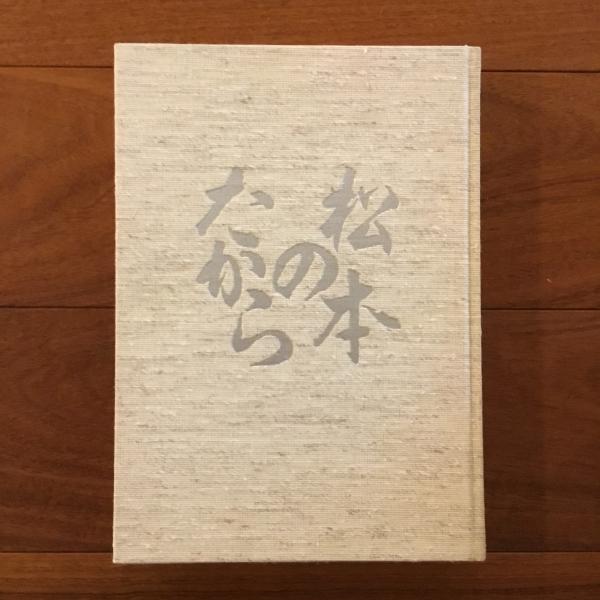 松本
の
たから